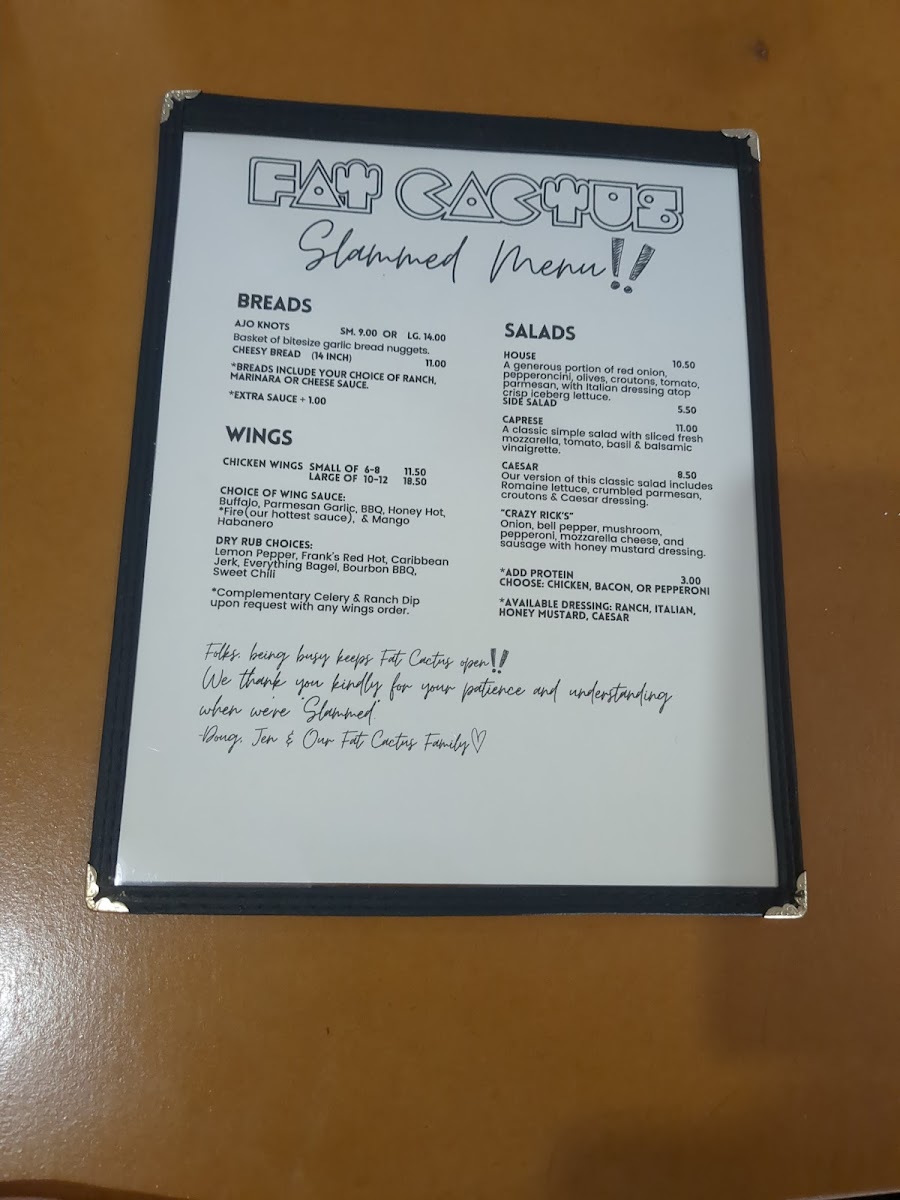 FAT CACTUS
Slammed Menu!!
BREADS
AJO KNOTS SM. 9.00 OR LG. 14.00
Basket of bitesize garlic bread nuggets.
CHEESY BREAD (14 INCH) 11.00
*BREADS INCLUDE YOUR CHOICE OF RANCH,
MARINARA OR CHEESE SAUCE.
*EXTRA SAUCE + 1.00
WINGS
CHICKEN WINGS SMALL OF 6-8 11.50
LARGE OF 10-12 18.50
CHOICE OF WING SAUCE:
Buffalo, Parmesan Garlic, BBQ, Honey Hot,
*Fire(our hottest sauce), & Mango
Habanero
DRY RUB CHOICES:
Lemon Pepper, Frank's Red Hot, Caribbean
Jerk, Everything Bagel, Bourbon BBQ,
Sweet Chili
*Complementary Celery & Ranch Dip
upon request with any wings order.
SALADS
HOUSE 10.50
A generous portion of red onion,
pepperoncini, olives, croutons, tomato,
parmesan, with Italian dressing atop
crisp iceberg lettuce.
SIDE SALAD 5.50
CAPRESE 11.00
A classic simple salad with sliced fresh
mozzarella, tomato, basil & balsamic
vinaigrette.
CAESAR 8.50
Our version of this classic salad includes
Romaine lettuce, crumbled parmesan,
croutons & Caesar dressing.
"CRAZY RICK'S"
Onion, bell pepper, mushroom,
pepperoni, mozzarella cheese, and
sausage with honey mustard dressing.
*ADD PROTEIN 3.00
CHOOSE: CHICKEN, BACON, OR PEPPERONI
*AVAILABLE DRESSING: RANCH, ITALIAN,
HONEY MUSTARD, CAESAR
Folks, being busy keeps Fat Cactus open!!
We thank you kindly for your patience and understanding
when we're "Slammed"
-Doug, Jen & Our Fat Cactus Family♡